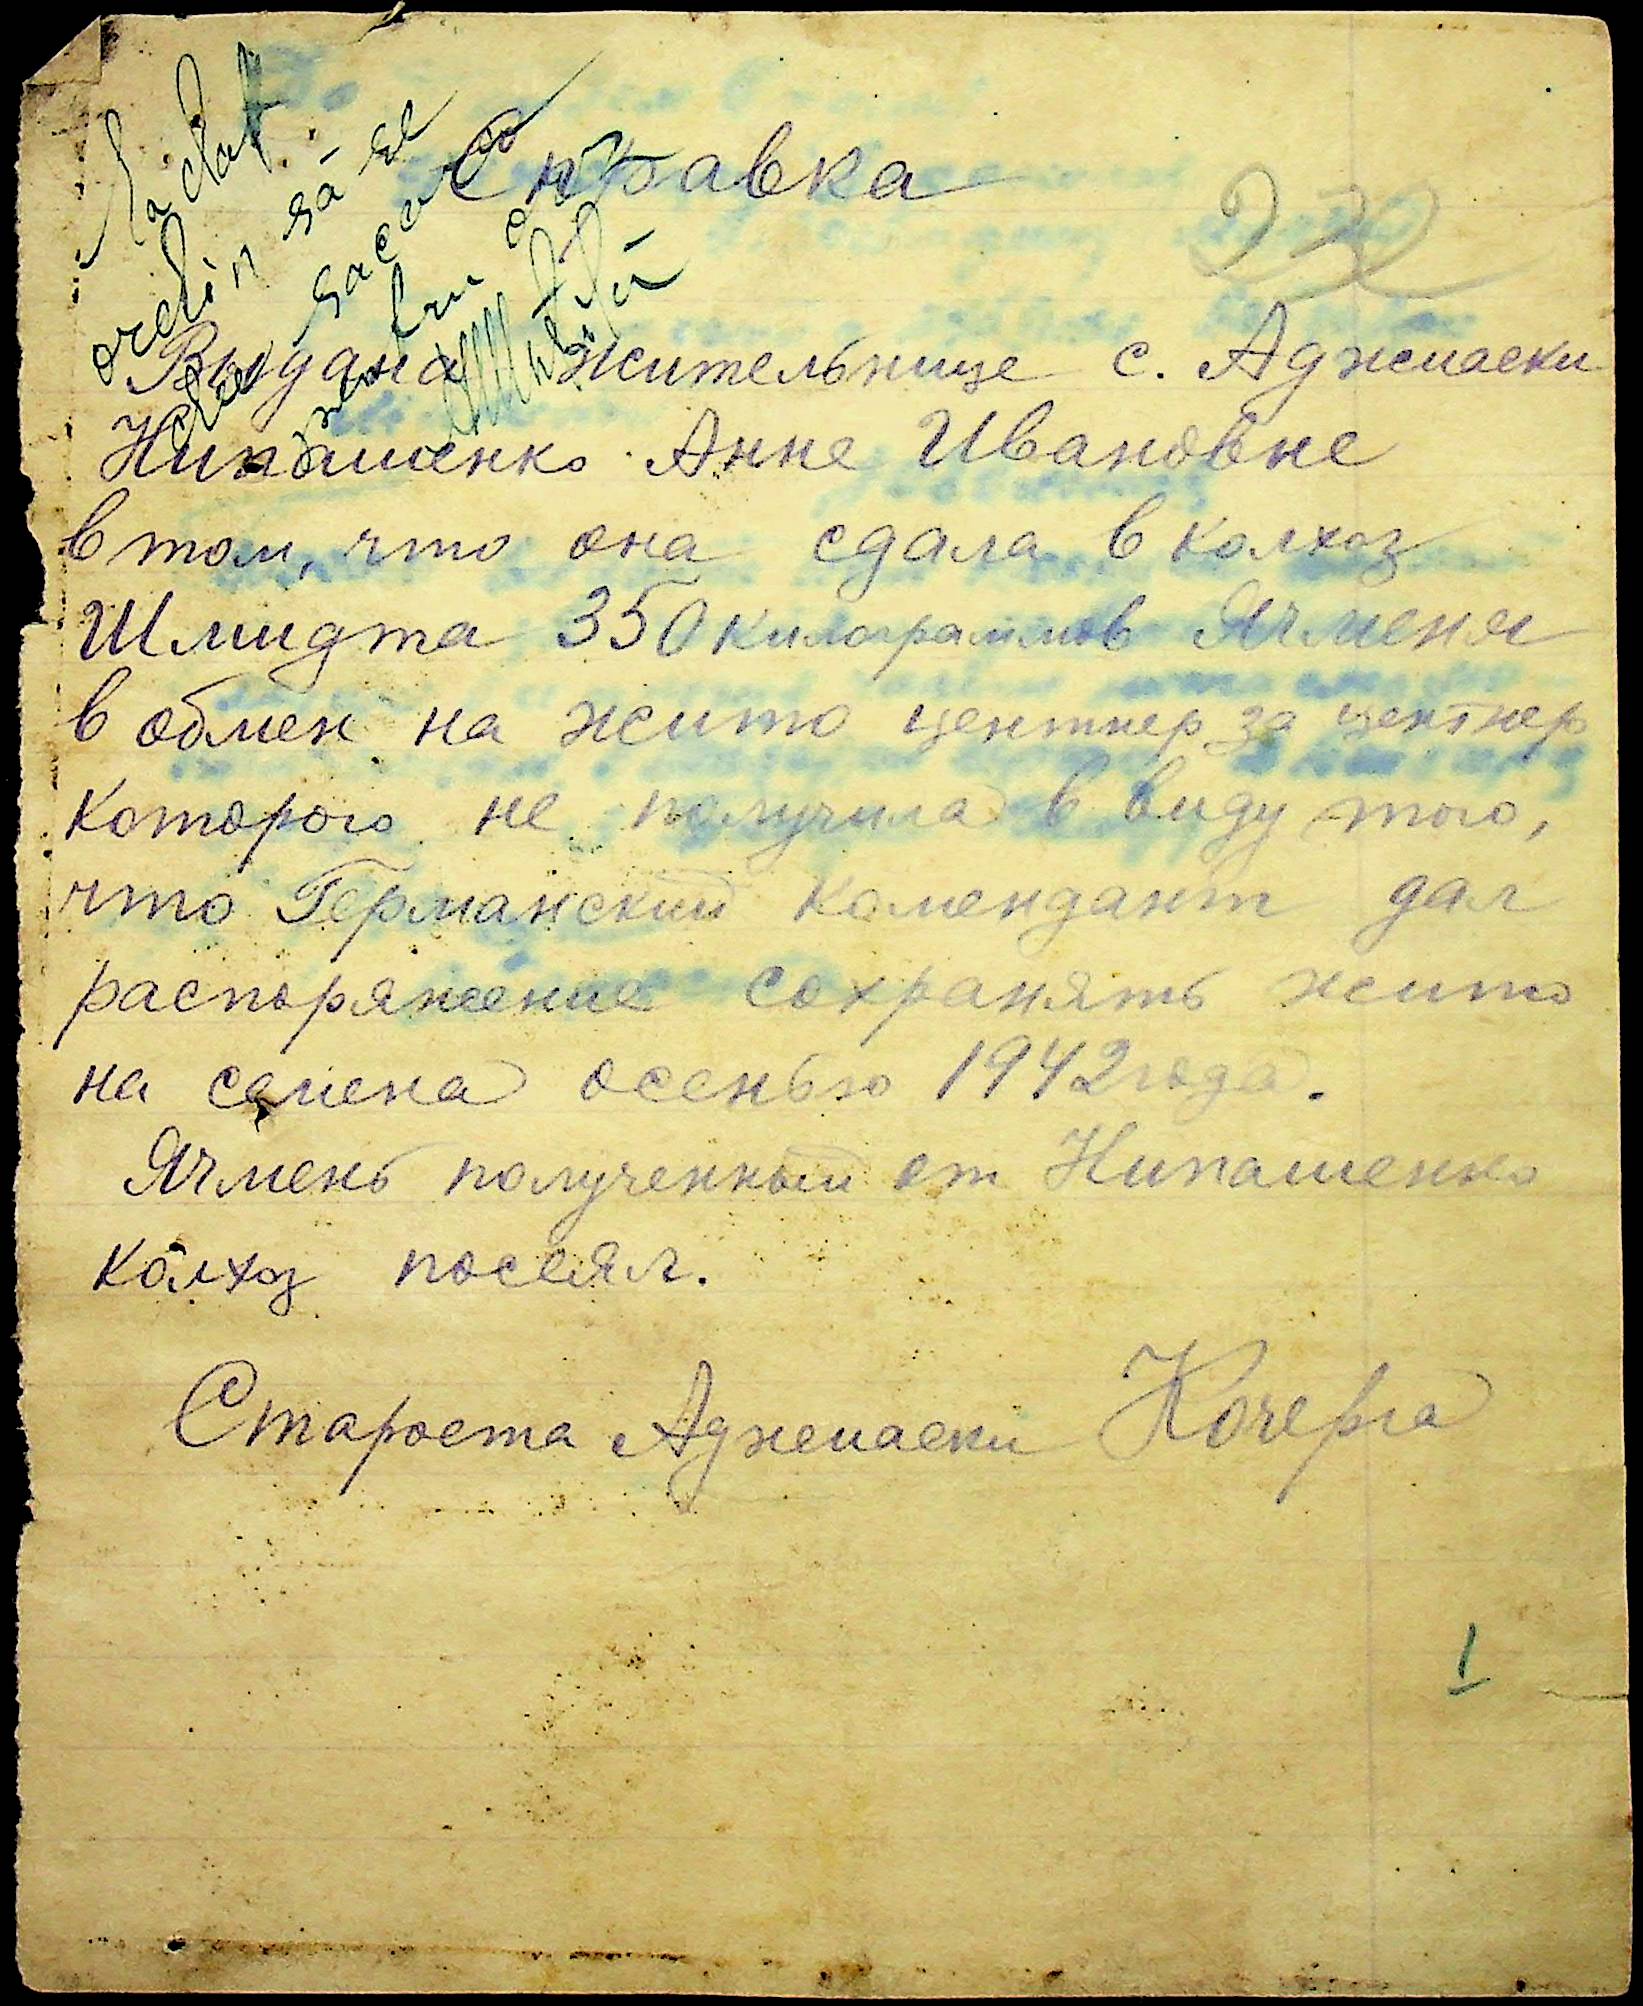 S'a dat
ordin să se
facă
Справка
22
Выдана жительнице с. Аджиаски
Нипашенко Анне Ивановне
в том, что она сдала в колхоз
Шмидта 350 килограммов Ячменя
в обмен на жито центнер за центнер
которого не получила в виду того,
что Германский комендант дал
распоряжение сохранять жито
на семена осенью 1942 года.
Ячмень полученный от Нипашенко
колхоз посеял.
Староста Аджиаски Кочерга
1